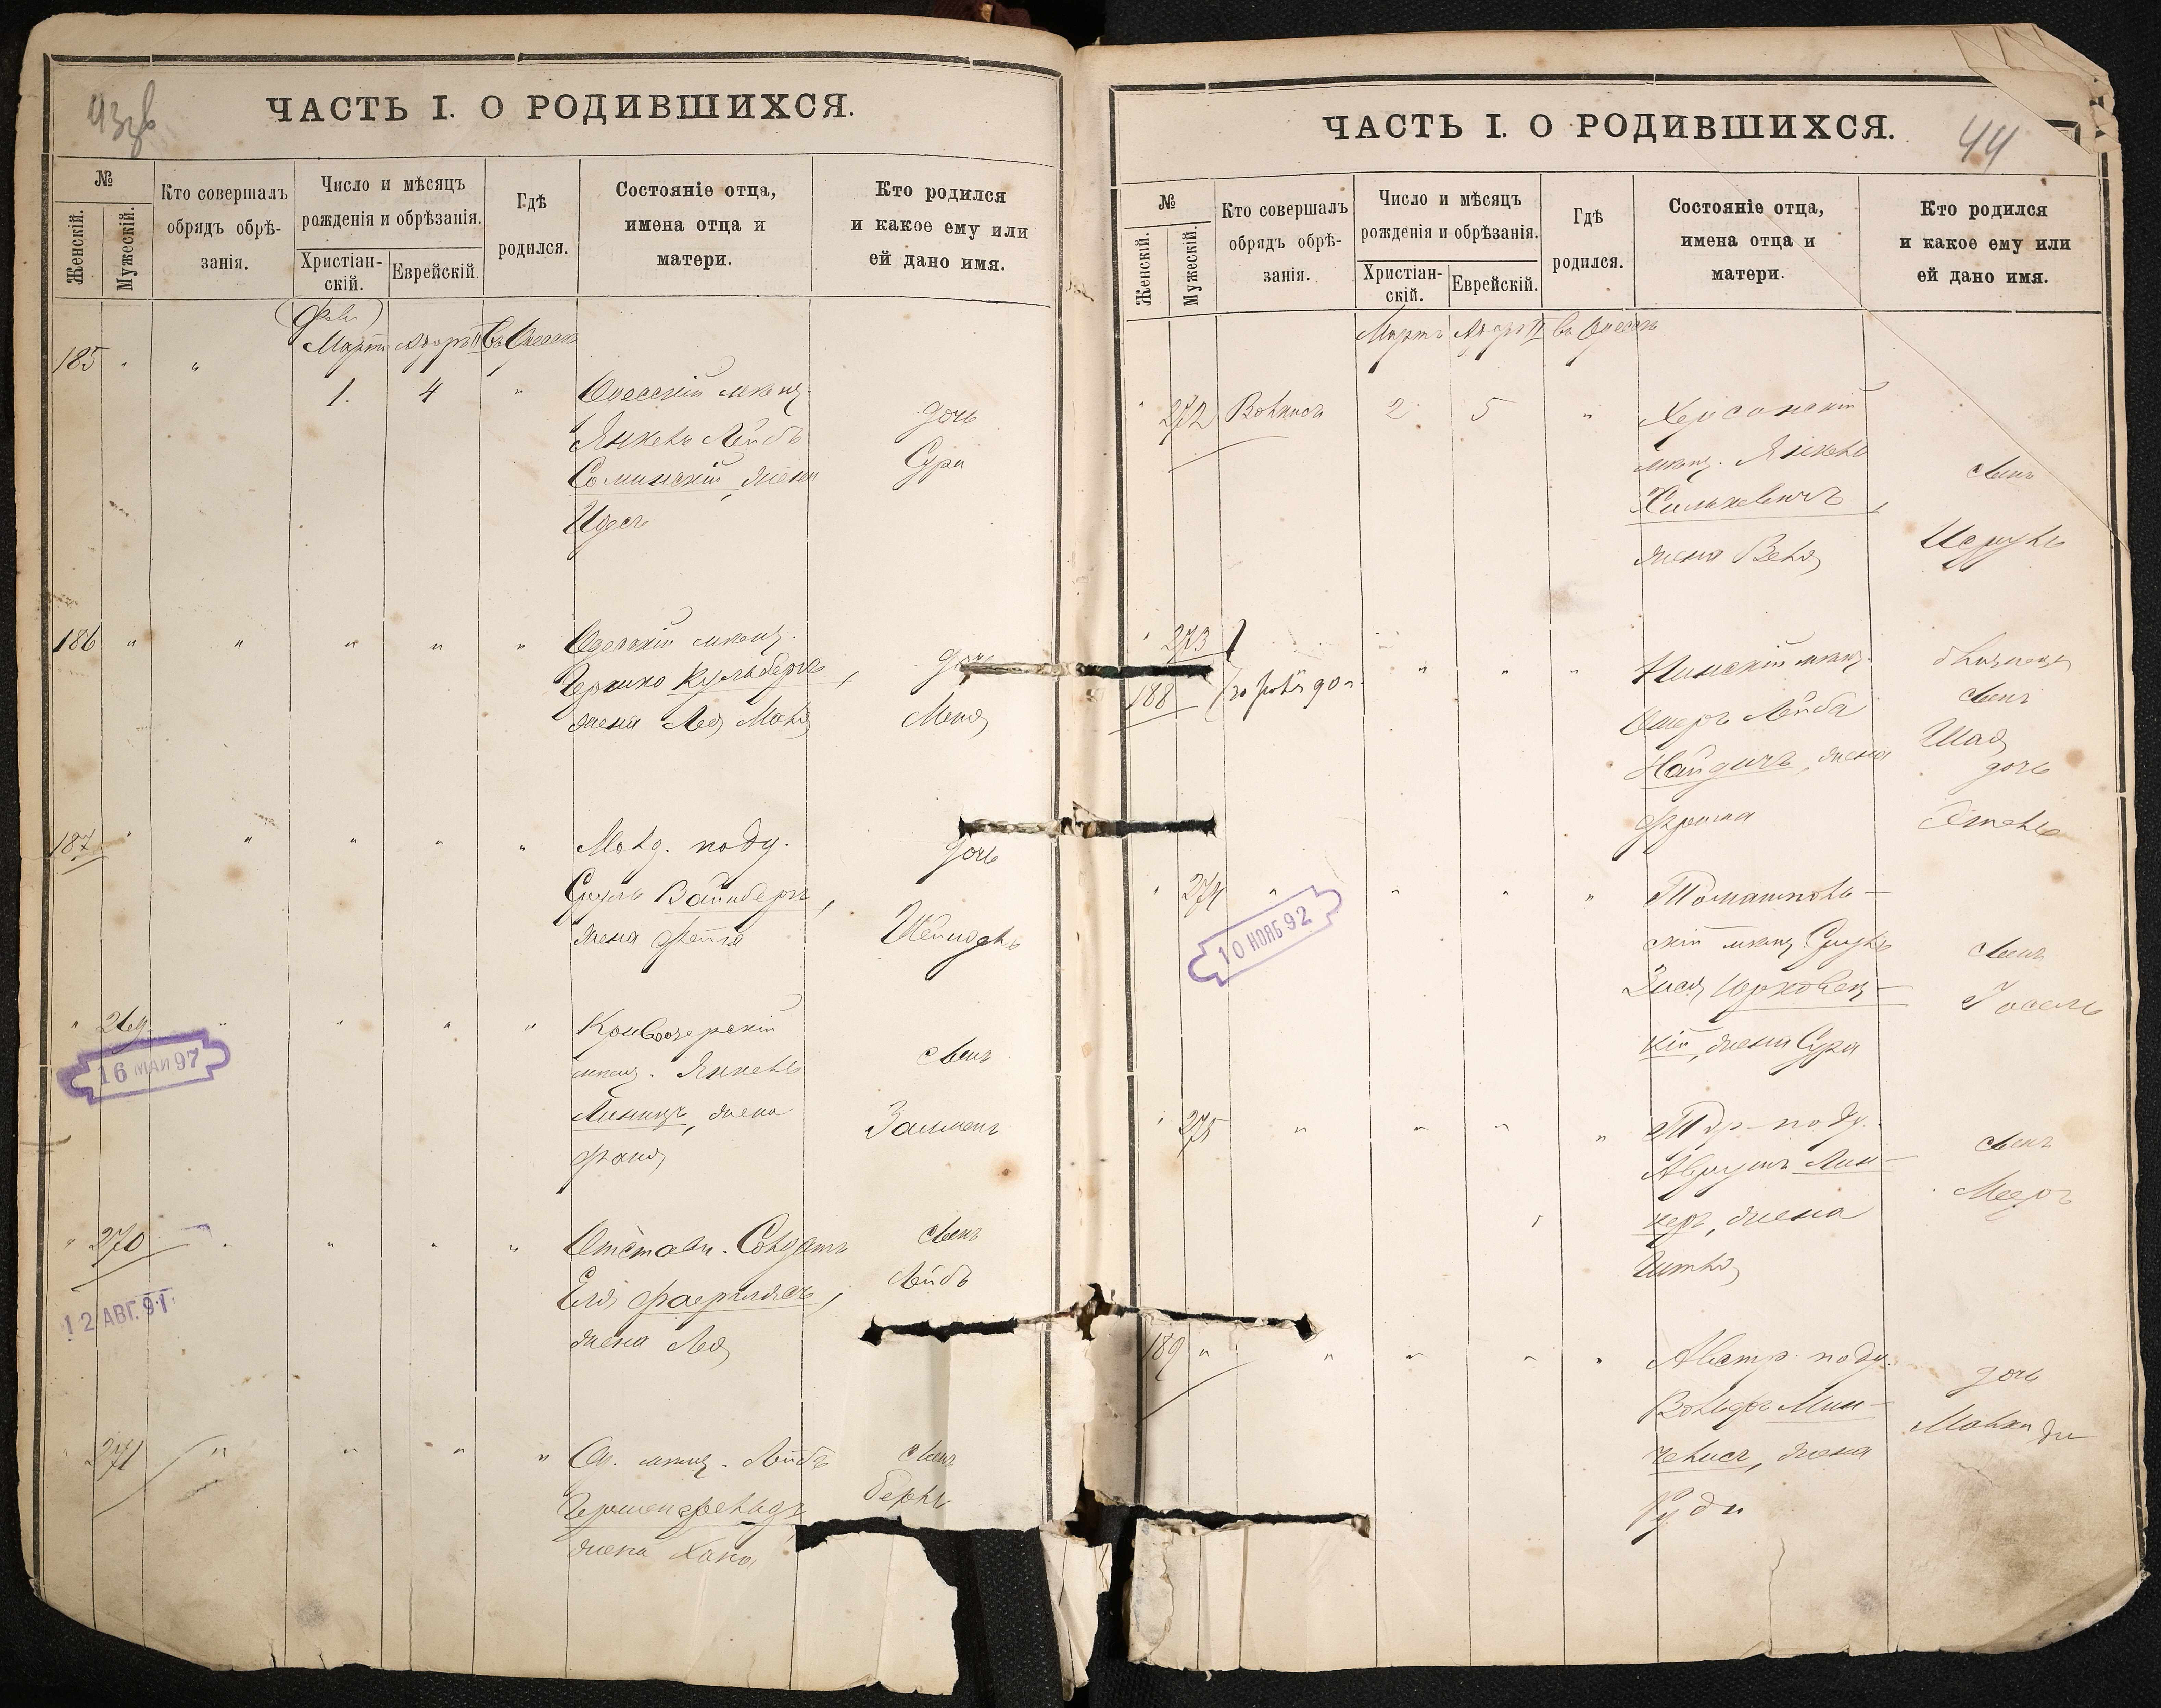 43об
ЧАСТЬ I. О РОДИВШИХСЯ.
№
Женскій.
Мужескій.
Кто совершалъ
обрядъ обрѣ-
занія.
Число и мѣсяцъ
рожденія и обрѣзанія.
Христіан-
скій.
Еврейскій.
Гдѣ
родился.
Состояніе отца,
имена отца и
матери.
Кто родился
и какое ему или
ей дано имя.
Мартъ Адаръ II въ Одессѣ
185 " " 1. 4 " Одесскій мѣщ.
Янкель Лейбъ
Соминскій, жена
Идесъ
дочь
Сура
186 " " " " " Одесскій мѣщ.
Кульбергъ,
жена Лея
дочь
Меня
187 " " " " " Молд. подд.
Срулъ Вайнбергъ,
жена Фейга
дочь
Шейндель
" 269 " " " "
мѣщ. Янкель
жена
Фаня
сынъ
Залменъ
16 МАЙ 97
" 270 " " " " Отставн. Солдатъ
Еля
жена Лея
сынъ
Лейбъ
12 АВГ. 91
" 271 " " " " Од. мѣщ. Лейбъ
Гершенфельдъ
жена Хана
сынъ
Беръ
44
ЧАСТЬ I. О РОДИВШИХСЯ.
№
Женскій.
Мужескій.
Кто совершалъ
обрядъ обрѣ-
занія.
Число и мѣсяцъ
рожденія и обрѣзанія.
Христіан-
скій.
Еврейскій.
Гдѣ
родился.
Состояніе отца,
имена отца и
матери.
Кто родился
и какое ему или
ей дано имя.
Мартъ Адаръ II въ Одессѣ
" 272 2 5 " Херсонскій
мѣщ. Янкель
Хилькевичъ,
жена Веля
сынъ
Исруль
" 273
188 " " " Пинскій мѣщ.
Лейба
Найдичъ, жена
Фрейма
близнецы
сынъ
Шая
дочь
Этель
" 274 " " " " Томашполь-
скій мѣщ. Сруль
Зися
кій, жена Сура
сынъ
Іосель
10 НОЯБ 92
" 275 " " " " Тур. подд.
Аврумъ Лин-
керъ, жена
Гитля
сынъ
Мееръ
189 " " " " " Австр. подд.
Вольфъ Мин-
чельсъ, жена
Руди
дочь